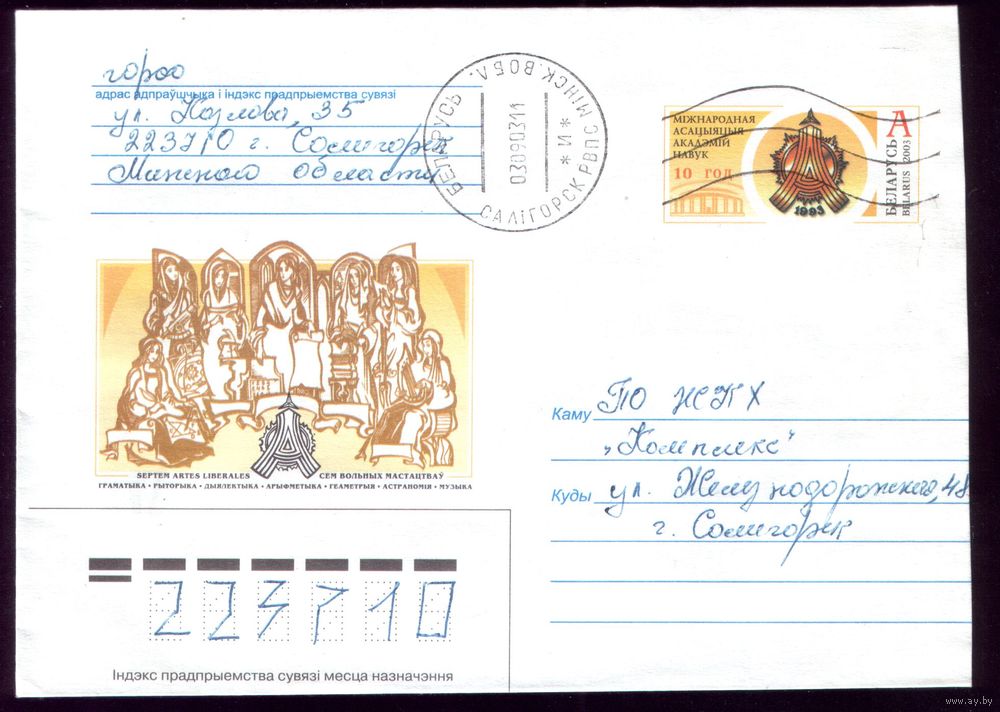 гороо
адрас адпраўшчыка і індэкс прадпрыемства сувязі
ул. Козлова, 35
223710 г. Солигорск
Минской области
БЕЛАРУСЬ
МІНСК. ВОБЛ.
03090311
*И*
САЛІГОРСК РВПС
МІЖНАРОДНАЯ
АСАЦЫЯЦЫЯ
АКАДЭМІЙ
НАВУК
10 ГОД
1993
А
БЕЛАРУСЬ
BELARUS 2003
SEPTEM ARTES LIBERALES СЕМ ВОЛЬНЫХ МАСТАЦТВАЎ
ГРАМАТЫКА • РЫТОРЫКА • ДЫЯЛЕКТЫКА • АРЫФМЕТЫКА • ГЕАМЕТРЫЯ • АСТРАНОМІЯ • МУЗЫКА
Каму ПО ЖСПХ
„Комплекс"
Куды ул. Железнодорожная, 48
г. Солигорск
223710
Індэкс прадпрыемства сувязі месца назначэння
www.ay.by